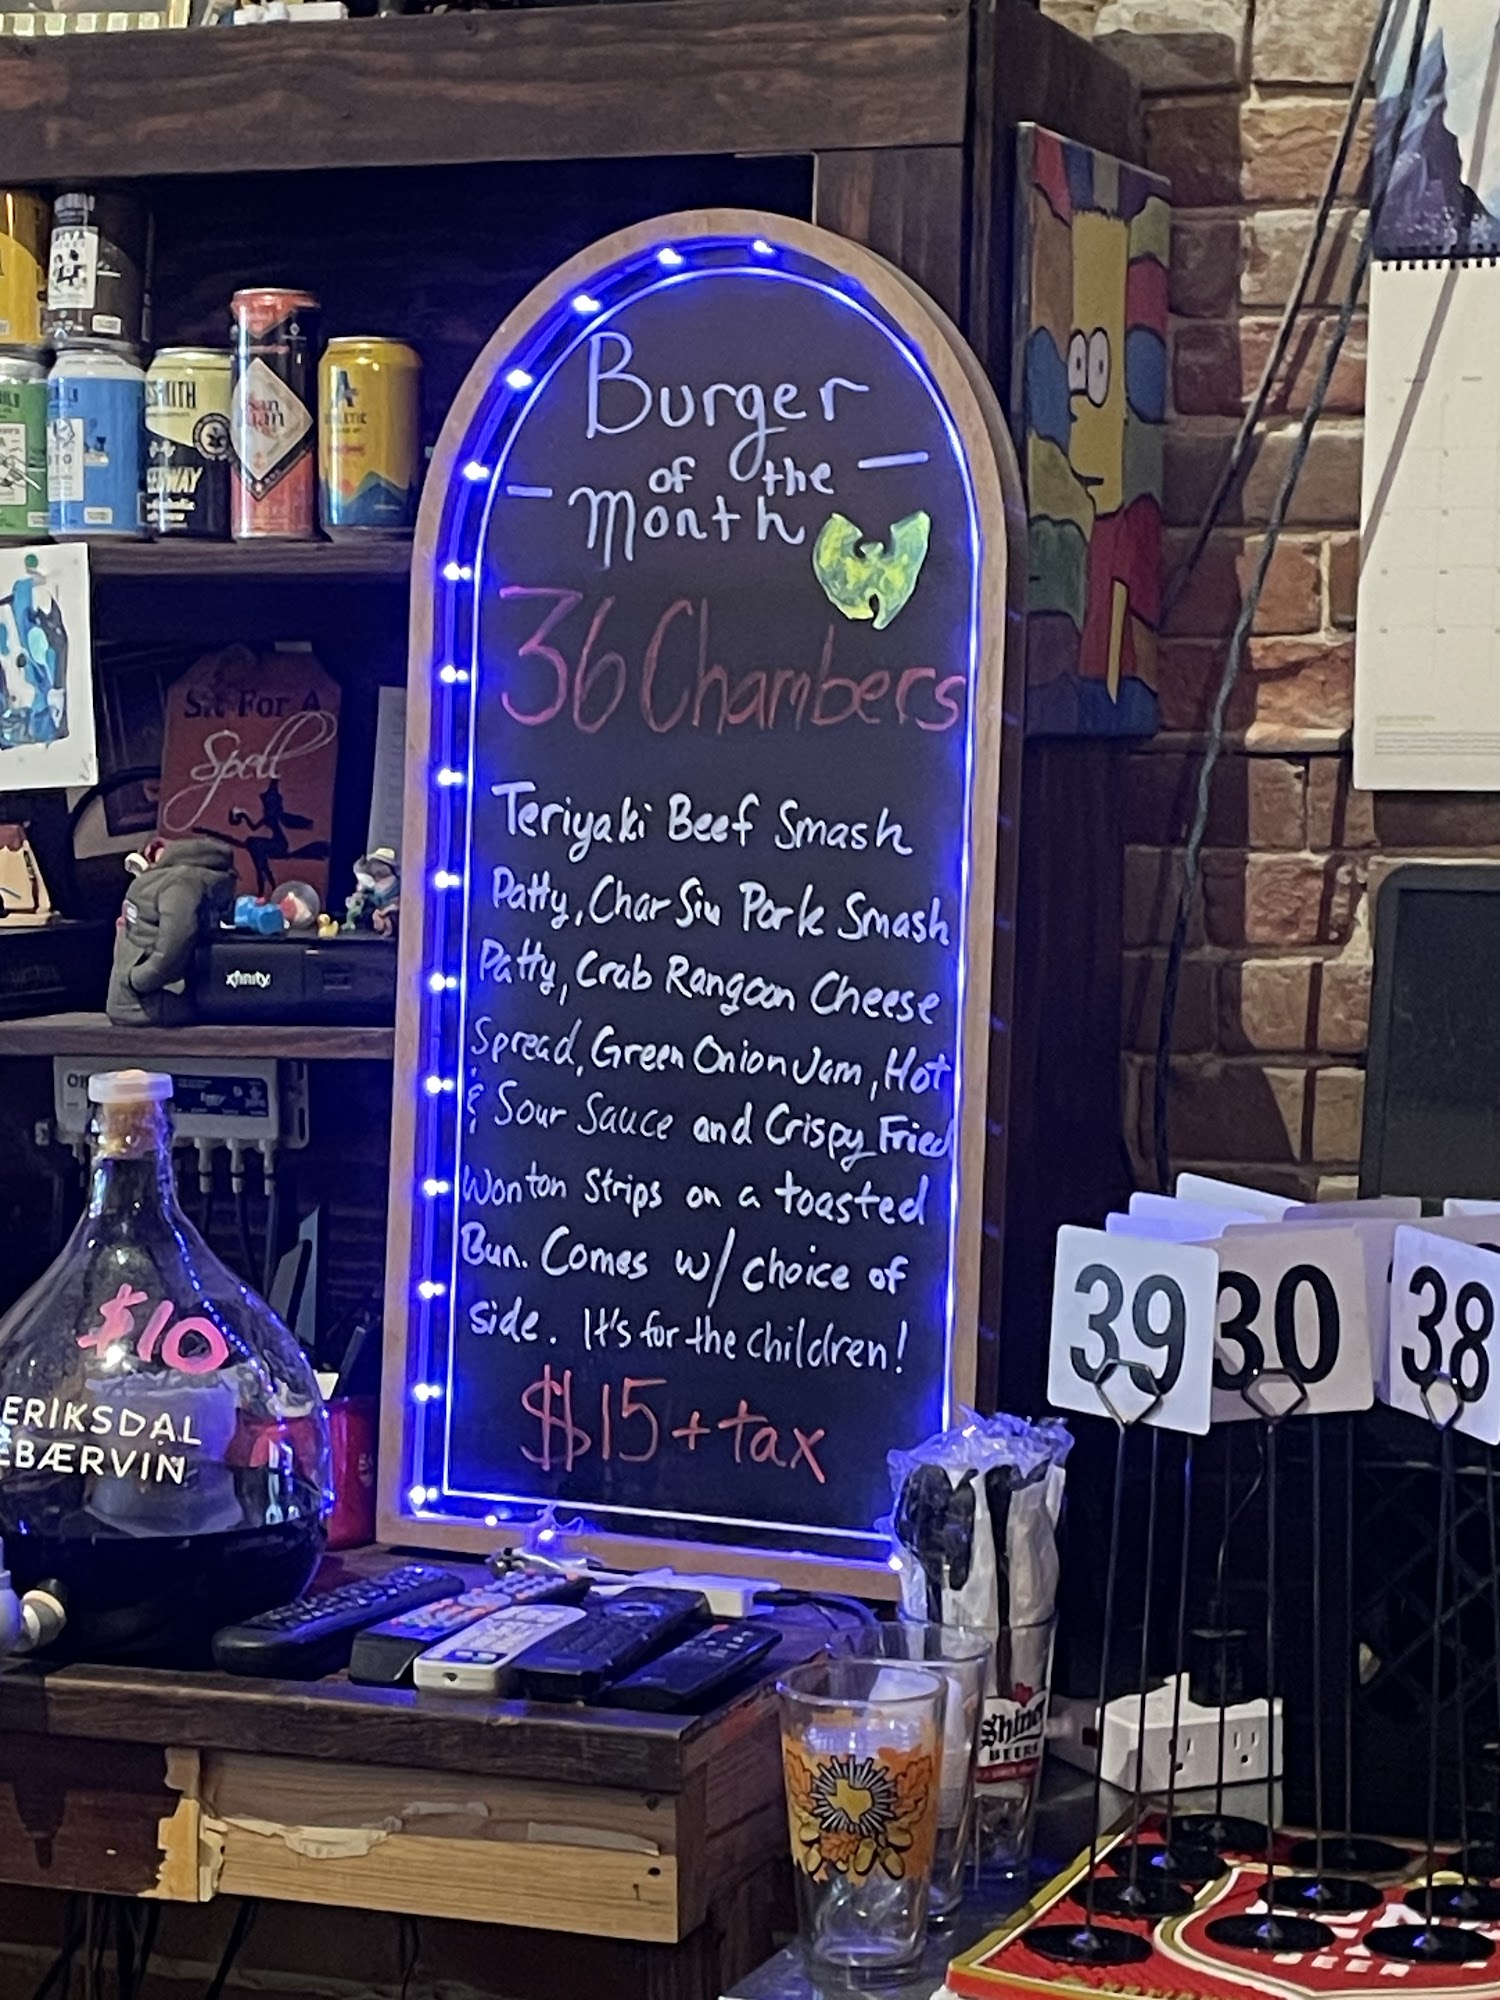 Burger
of the
Month
36 Chambers
Teriyaki Beef Smash
Patty, Char Siu Pork Smash
Patty, Crab Rangoon Cheese
Spread, Green Onion Jam, Hot
& Sour Sauce and Crispy Fried
Wonton Strips on a toasted
Bun. Comes w/ choice of
side. It's for the children!
$15 + tax
San
Juan
Sit For A
Spell
xfinity
$10
ERIKSDAL
BÆRVIN
39
30
38
Shiner
BEERS